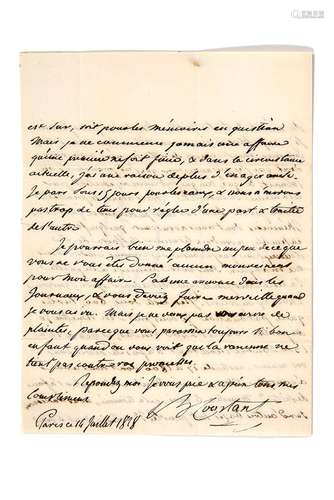 est sur, soit pour les mémoires en question
Mais je ne commence jamais une affaire
qu'une première ne soit finie, & dans la circonstance
actuelle, j'ai une raison de plus d'en agir ainsi.
Je pars sous 15 jours pour les eaux, & nous n'avons
pas trop de tems pour régler d'une part & traiter
de l'autre.
Je pourrais bien me plaindre un peu de ce que
vous ne vous êtes donné aucun mouvement
pour mon affaire. Pas une annonce dans les
Journaux, & vous deviez faire merveille quand
je vous ai vu. Mais je ne veux pas vous
plaintes, parce que vous prenez toujours si bon
enfant quand on vous voit que la rancune ne
tient pas contre vos
Répondez moi je vous prie & agréez tous mes
Complimens
B Constant
Paris ce 14 Juillet 1818